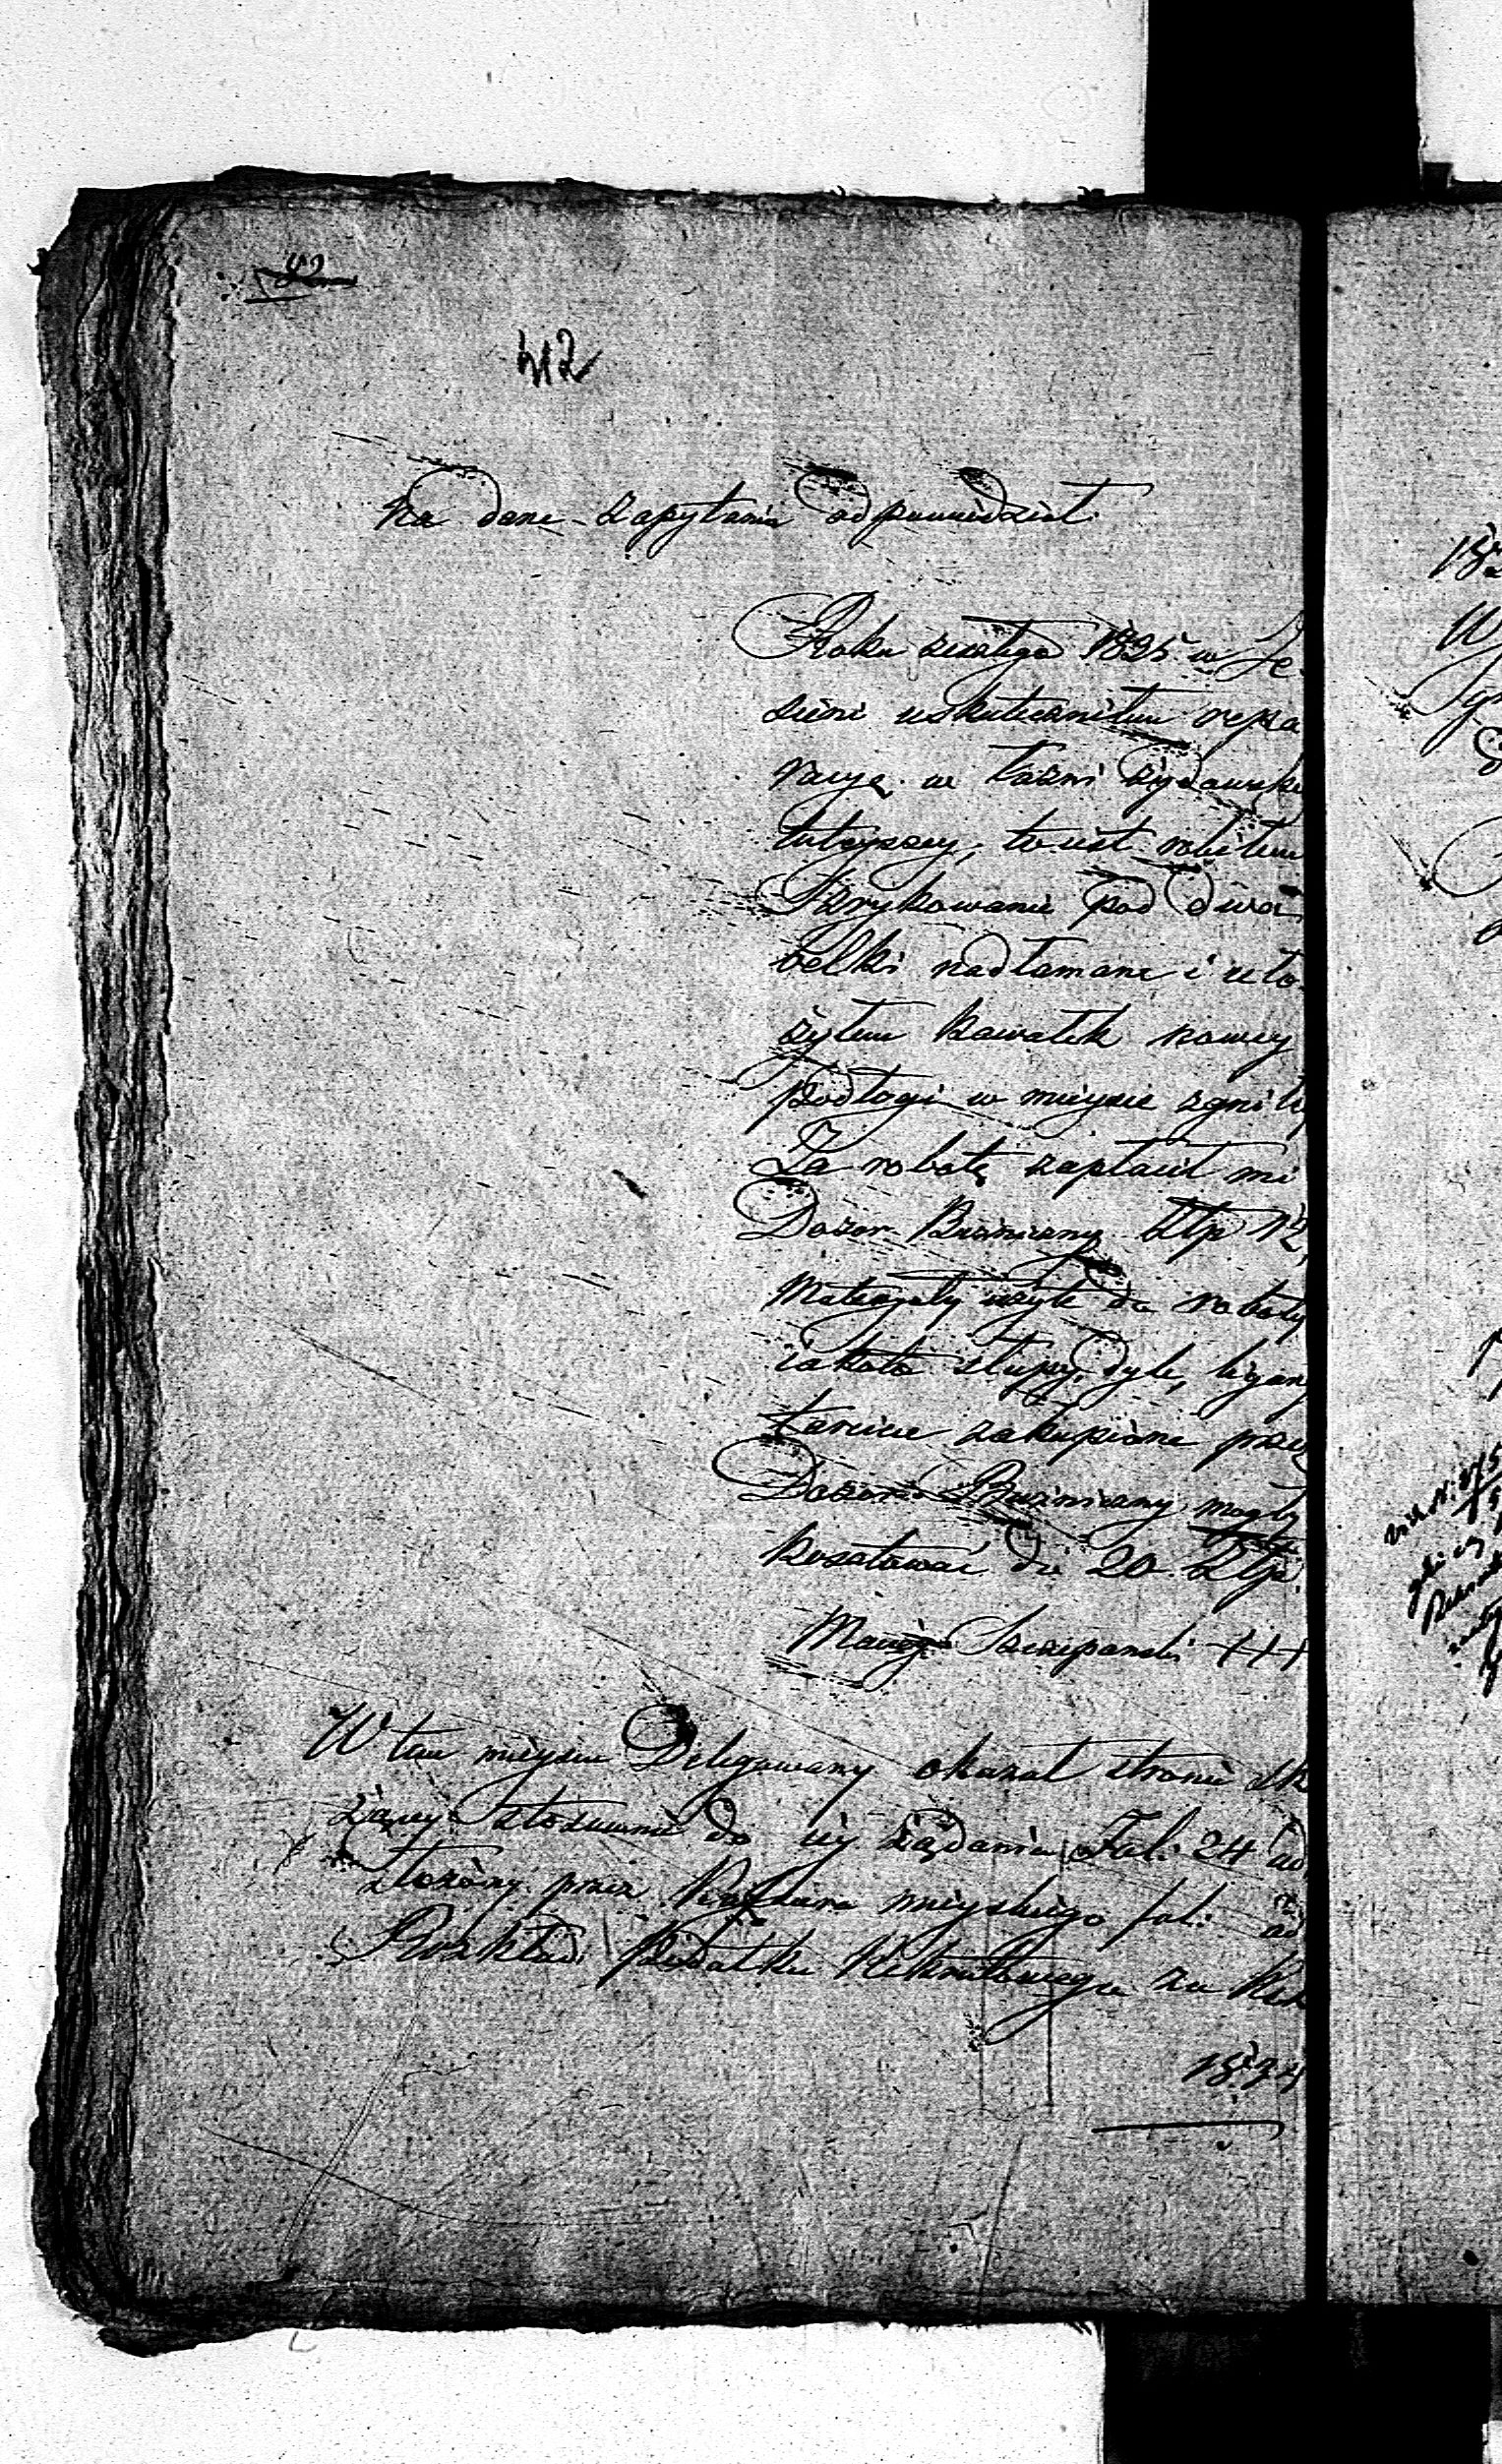 82
412
Na dane zapytania odpowiedział.
Roku zeszłego 1825 w Je
sieni uskuteczniłem repa
racyę w łaźni żydowski
tuteyszey, to iest robiłem
Sztrykowanie pod dwa
belki nadłamane i uło
żyłem kawałek nowey
podłogi w mieysce zgniłey
Za robotę zapłacił mi
Dozor Bużniczny Złp 12,
Materyały użyte do roboty
iakoto słupy, dyle, ligary
tarcice zakupione przez
Dozor Bużniczny mogły
kosztować do 20 Złp.
Maciey Szczepanski +++
W tem mieyscu Delegowany okazał stronie
żącey stosownie do iey żądania Fol. 24
złożony przez Kassiera mieyskiego fol: ad
Rozkład Podatku Rekrutowego za Rok
1824